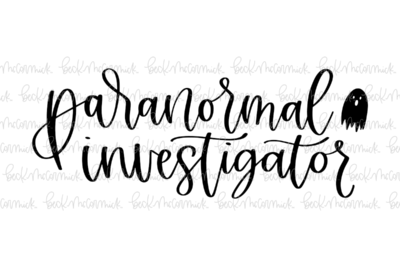 paranormal
investigator